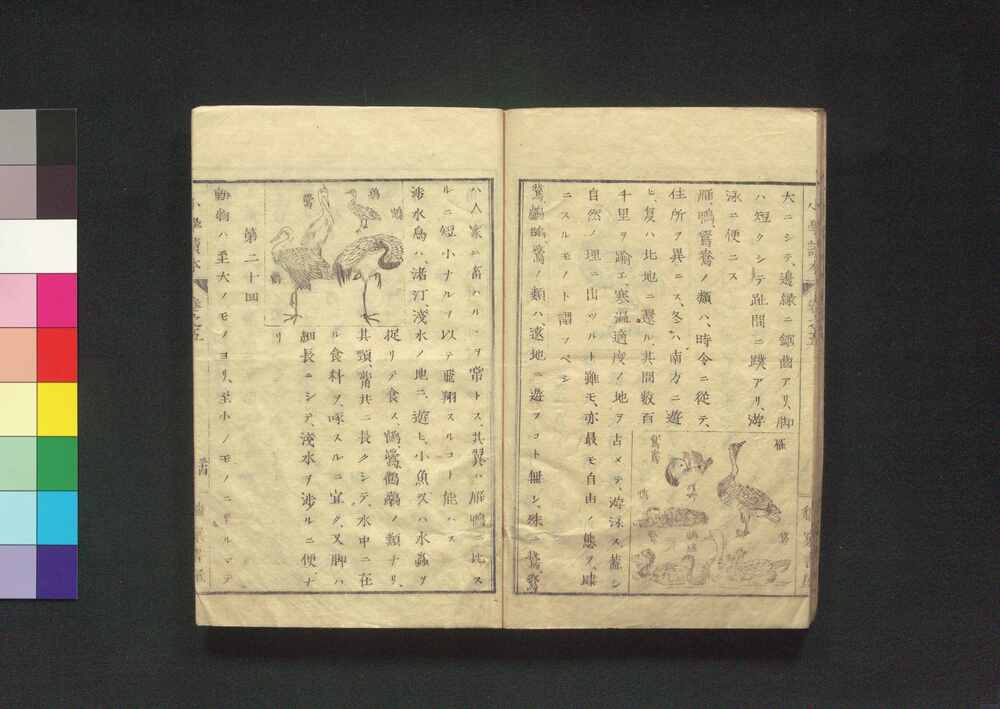 大ニシテ、邊緣ニ鋸齒アリ、脚
ハ短クシテ趾間ニ蹼アリ、游
泳ニ便ニス
雁、鴨、鴛鴦ノ類ハ、時令ニ從テ、
住所ヲ異ニス、冬ハ南方ニ遊
ヒ、夏ハ北地ニ遷ル、其間數百
千里ヲ踰エ、寒温適度ノ地ヲ占メテ、游泳ス、蓋シ
自然ノ理ニ出ツルト雖モ、亦最モ自由ノ態ヲ、肆
ニスルモノト謂フベシ
鵞、鶩ノ類ハ遠地ニ遊フコト無シ、殊ニ鵞、鶩
雁
鴛鴦
鴨
鵞
ハ人家ニ畜ハルヽヲ常トス、其翼ハ雁鴨ニ比ス
ルニ短小ナルヲ以テ飛翔スルコト能ハス
涉水鳥ハ、渚汀、淺水ノ地ニ、遊ヒ、小魚又ハ水蟲ヲ
捉リテ食ス、鶴、鷺、鸛、鷸ノ類ナリ、
其頸、觜共ニ長クシテ、水中ニ在
ル食料ヲ、啄スルニ宜ク、又脚ハ
細長ニシテ、淺水ヲ涉ルニ便ナ
リ
鷸
鶴
鷺
第二十回
動物ハ至大ノモノヨリ、至小ノモノニ至ルマテ